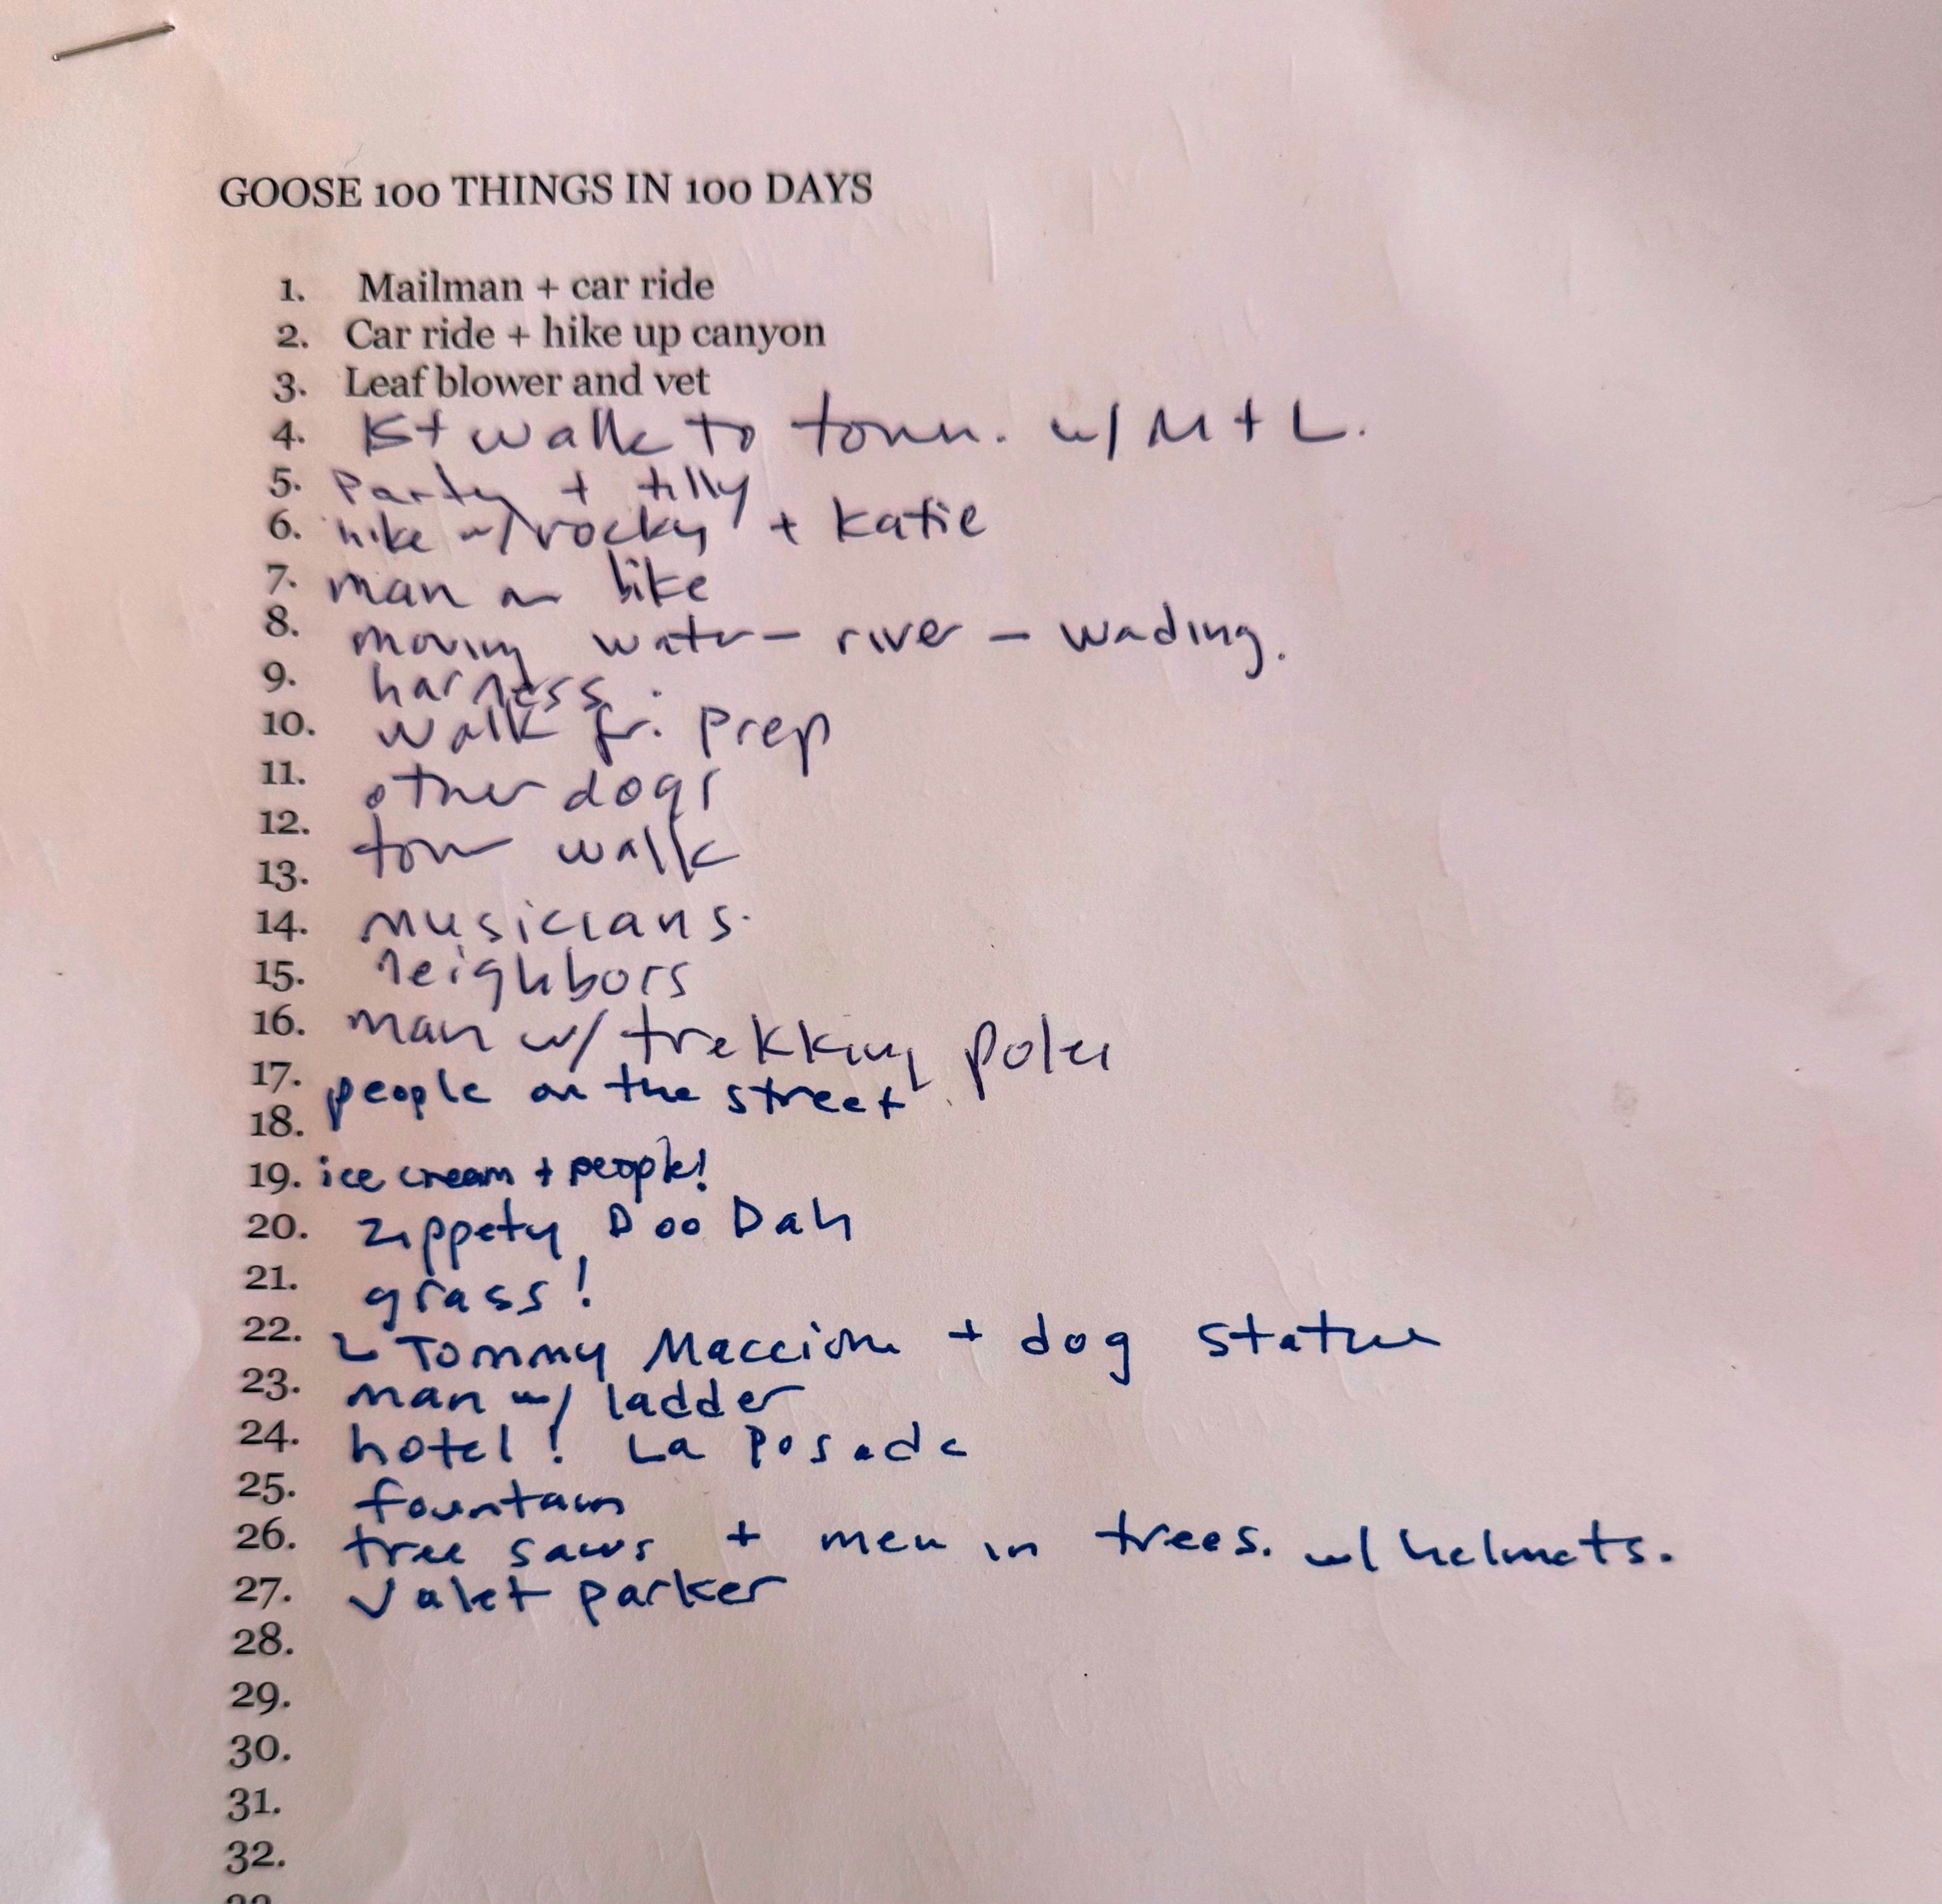 GOOSE 100 THINGS IN 100 DAYS
1. Mailman + car ride
2. Car ride + hike up canyon
3. Leaf blower and vet
4. 1st walk to town. w/ M + L.
5. Party + tilly
6. hike w/ rocky + Katie
7. man on bike
8. moving water – river – wading.
9. harness.
10. walk fr. prep
11. other dogs
12. town walk
13.
14. musicians.
15. neighbors
16. man w/ trekking poles
17. people on the street.
18.
19. ice cream + people!
20. Zippety Doo Dah
21. grass!
22. Tommy Maccione + dog statue
23. man w/ ladder
24. hotel! La Posada
25. fountain
26. tree saws + men in trees. w/ helmets.
27. Valet parker
28.
29.
30.
31.
32.